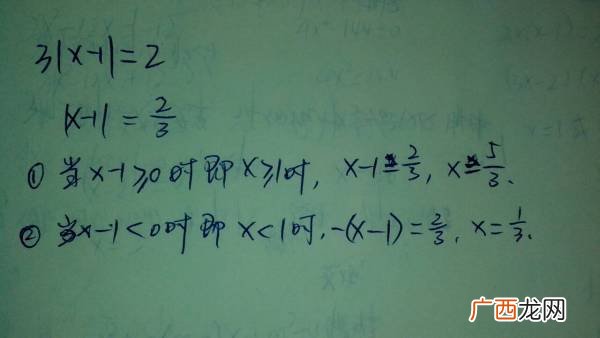 3|x-1|=2
|x-1|=2/3
① 当x-1≥0时即x≥1时, x-1=2/3, x=5/3.
② 当x-1<0时即x<1时, -(x-1)=2/3, x=1/3.
广西龙网